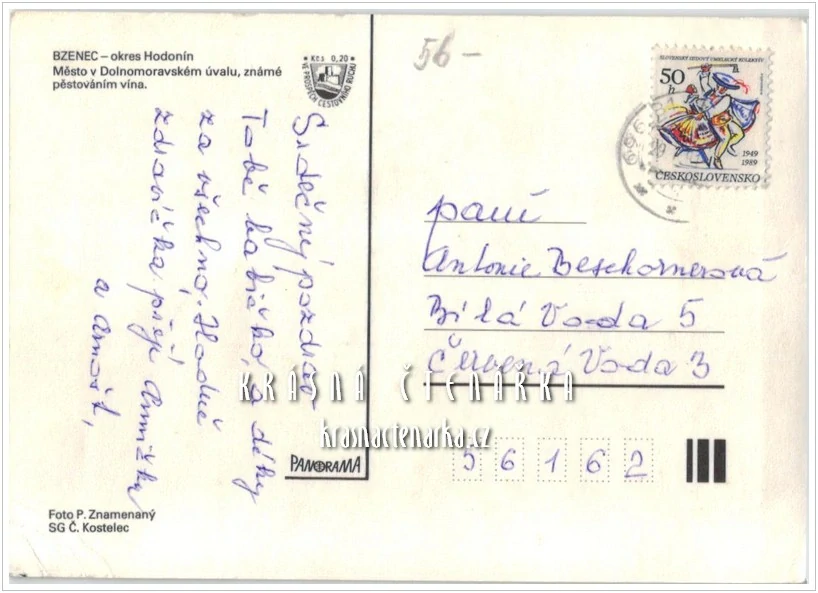 BZENEC – okres Hodonín
Město v Dolnomoravském úvalu, známé
pěstováním vína.
Kčs 0,20
VE PROSPĚCH CESTOVNÍHO RUCHU
56–
SLOVENSKÝ ĽUDOVÝ UMELECKÝ KOLEKTÍV
50
h
1949
1989
ČESKOSLOVENSKO
696
Srdečný pozdrav
Tobě babičko, a díky
za všechno. Hodně
zdravíčka přeje Annička
a Arnošt,
paní
Antonie Beschornerová
Bílá Voda 5
Červená Voda 3
KRÁSNÁ ČTENÁŘKA
krasnactenarka.cz
PANORAMA
56162
Foto P. Znamenaný
SG Č. Kostelec